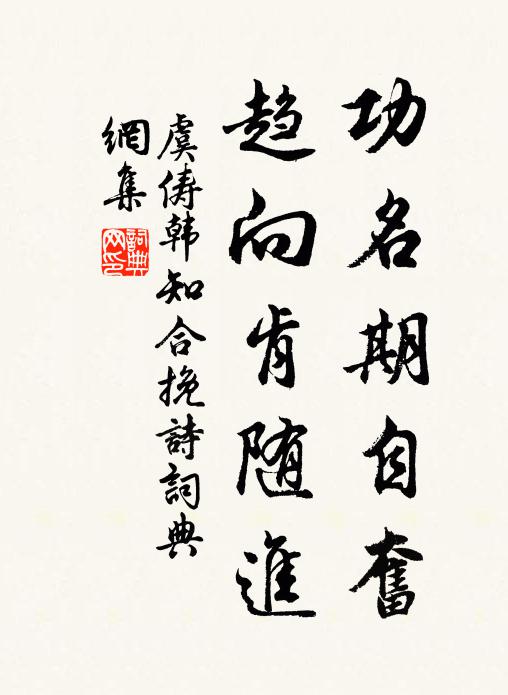 功名期自奮
趋向肯随進
虞儔韩知合挽詩詞典
網集
詞典
网印